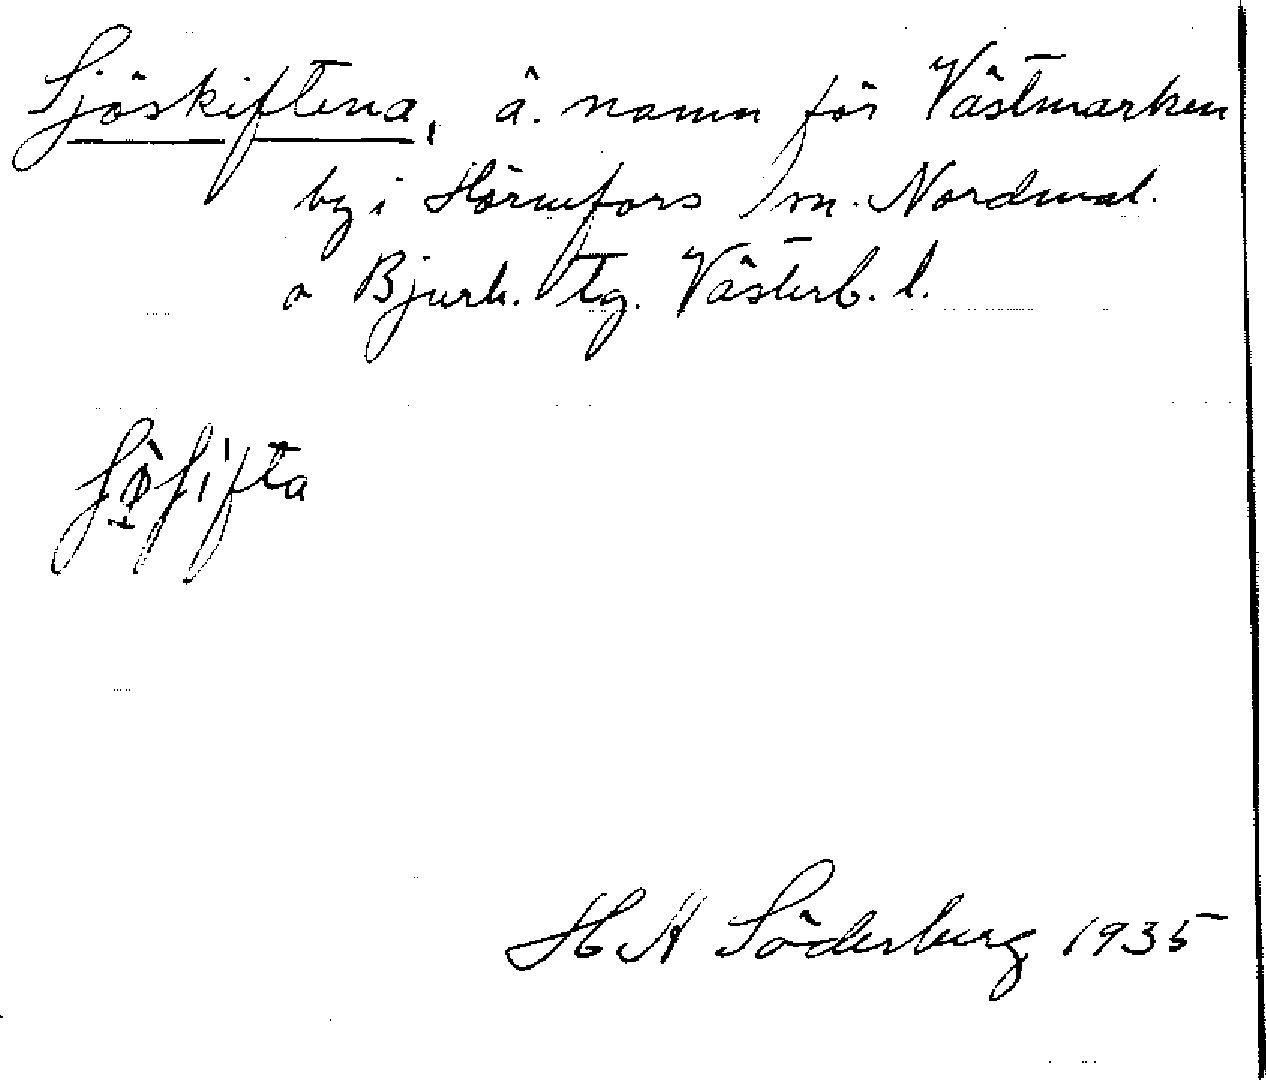 Sjöskiftena, å. namn för Västmarken
by i Hörnefors sn. Nordmal.
o Bjurh. tg. Västerb. l.
ʃø̀ʃifta
H A Söderberg 1935